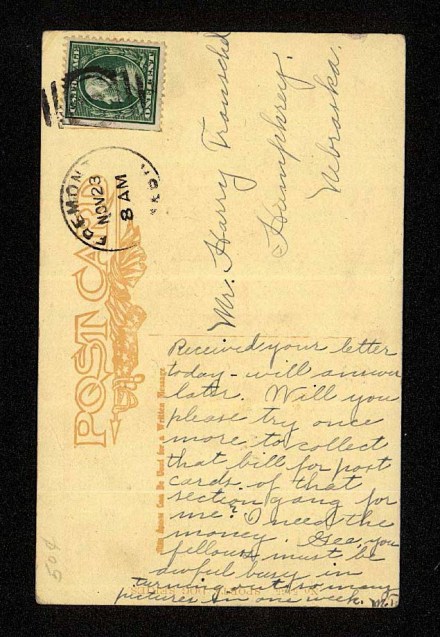 U.S. POSTAGE
NOV 23
8 AM
POST CARD
This Space Can Be Used for a Written Message
Mr. Harry
Humphrey.
Nebraska.
Received your letter
today - will answer
later. Will you
please try once
more to collect
that bill for post
cards of that
section gang for
me? I need the
money. Gee, you
fellows must be
awful busy in
turning out so many
pictures in one week. M.T.
50¢